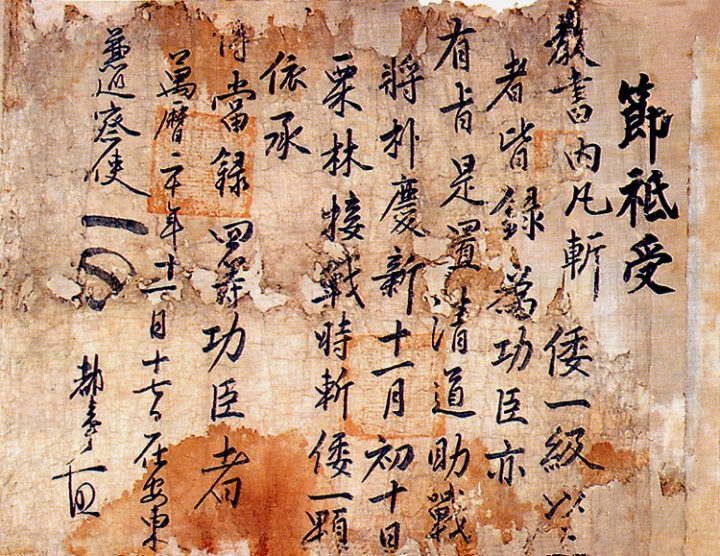 節祗受
教書內凡斬倭一級以
者皆録爲功臣亦
有旨是置清道助戰
將朴慶新十一月初十日
栗林接戰時斬倭一顆
依承
傳當録 功臣者
萬曆二十年十一月十七日在安東
兼巡察使